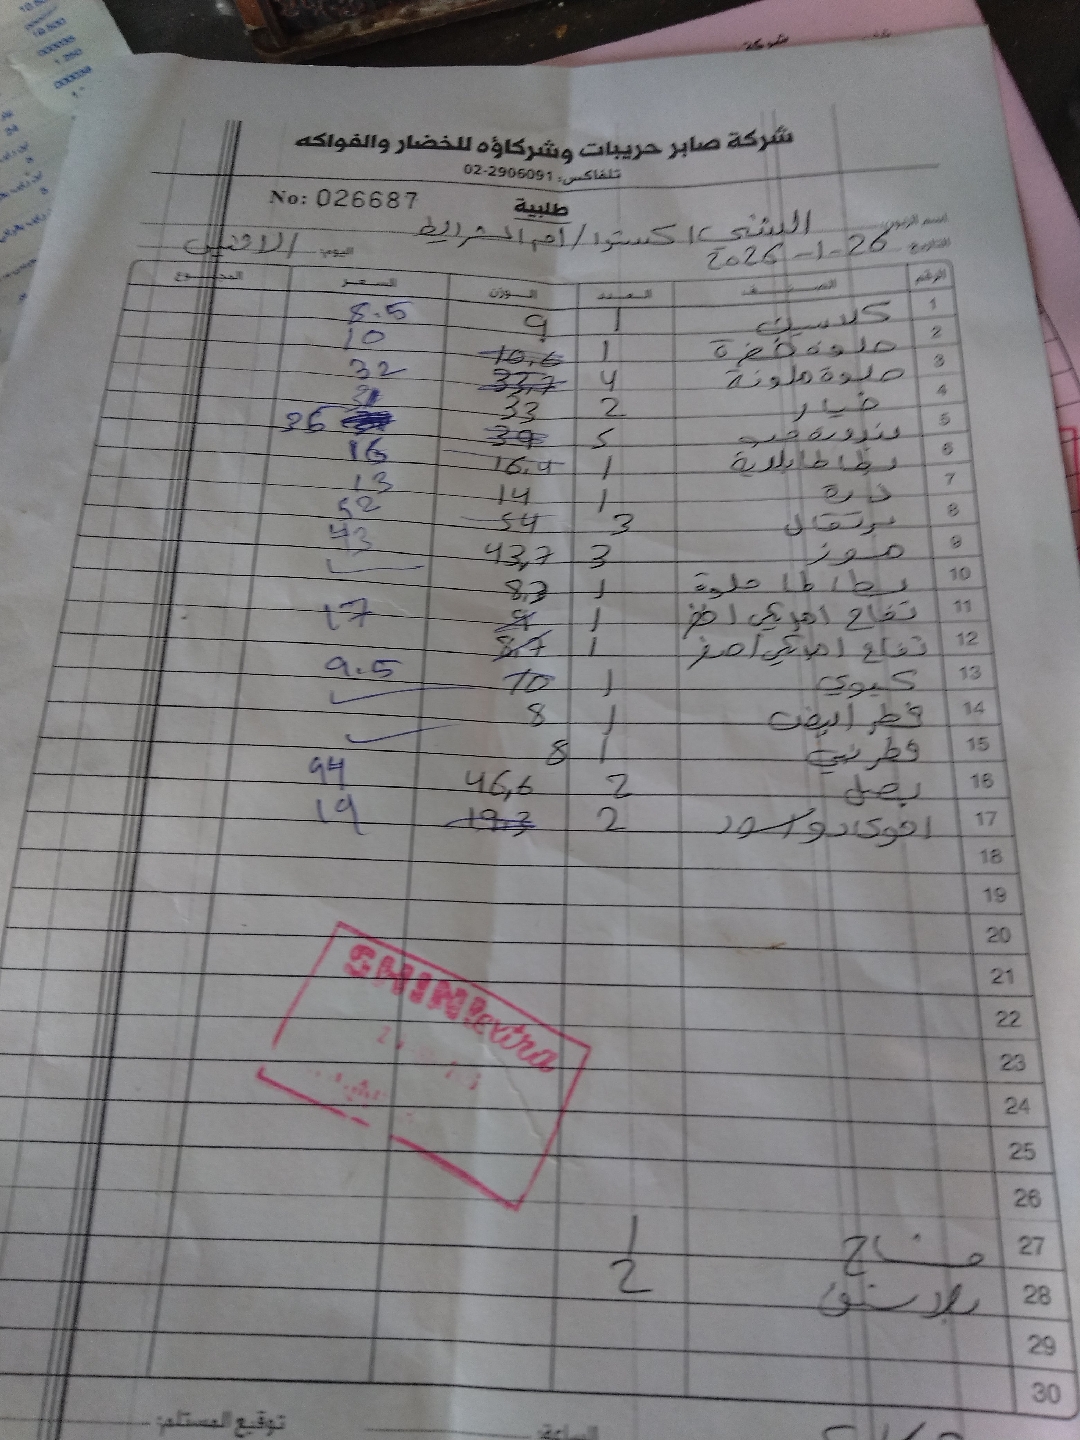 شركة صابر حريبات وشركاؤه للخضار والفواكه
تلفاكس: 02-2906091
No: 026687
طلبية
اسم الزبون: الشني اكسترا / ام الشرايط
التاريخ 26-1-2026 اليوم: الاثنين
الرقم الصنف العدد الوزن السعر المجموع
1 كلاسيك 1 9 8.5
2 حلوة خضرة 1 10,6 10
3 حلوة ملونة 4 33,7 32
4 خيار 2 33 31
5 بندورة 5 39 36
6 بطاطا بلدية 1 16,4 16
7 ذرة 1 14 13
8 برتقال 3 54 52
9 موز 3 43,7 43
10 بطاطا حلوة 1 8,3
11 تفاح امريكي 1 9 17
12 تفاح امريكي اصفر 1 8,7
13 كيوي 1 10 9.5
14 فطر ابيض 1 8
15 فطر بني 1 8
16 بصل 2 46,6 44
17 افوكادو اسود 2 19.3 19
18
19
20
21
22
SHINI extra
23
24
25
26
27 مشاح 1
28 بلاستيك 2
29
30
الساعة: توقيع المستلم: